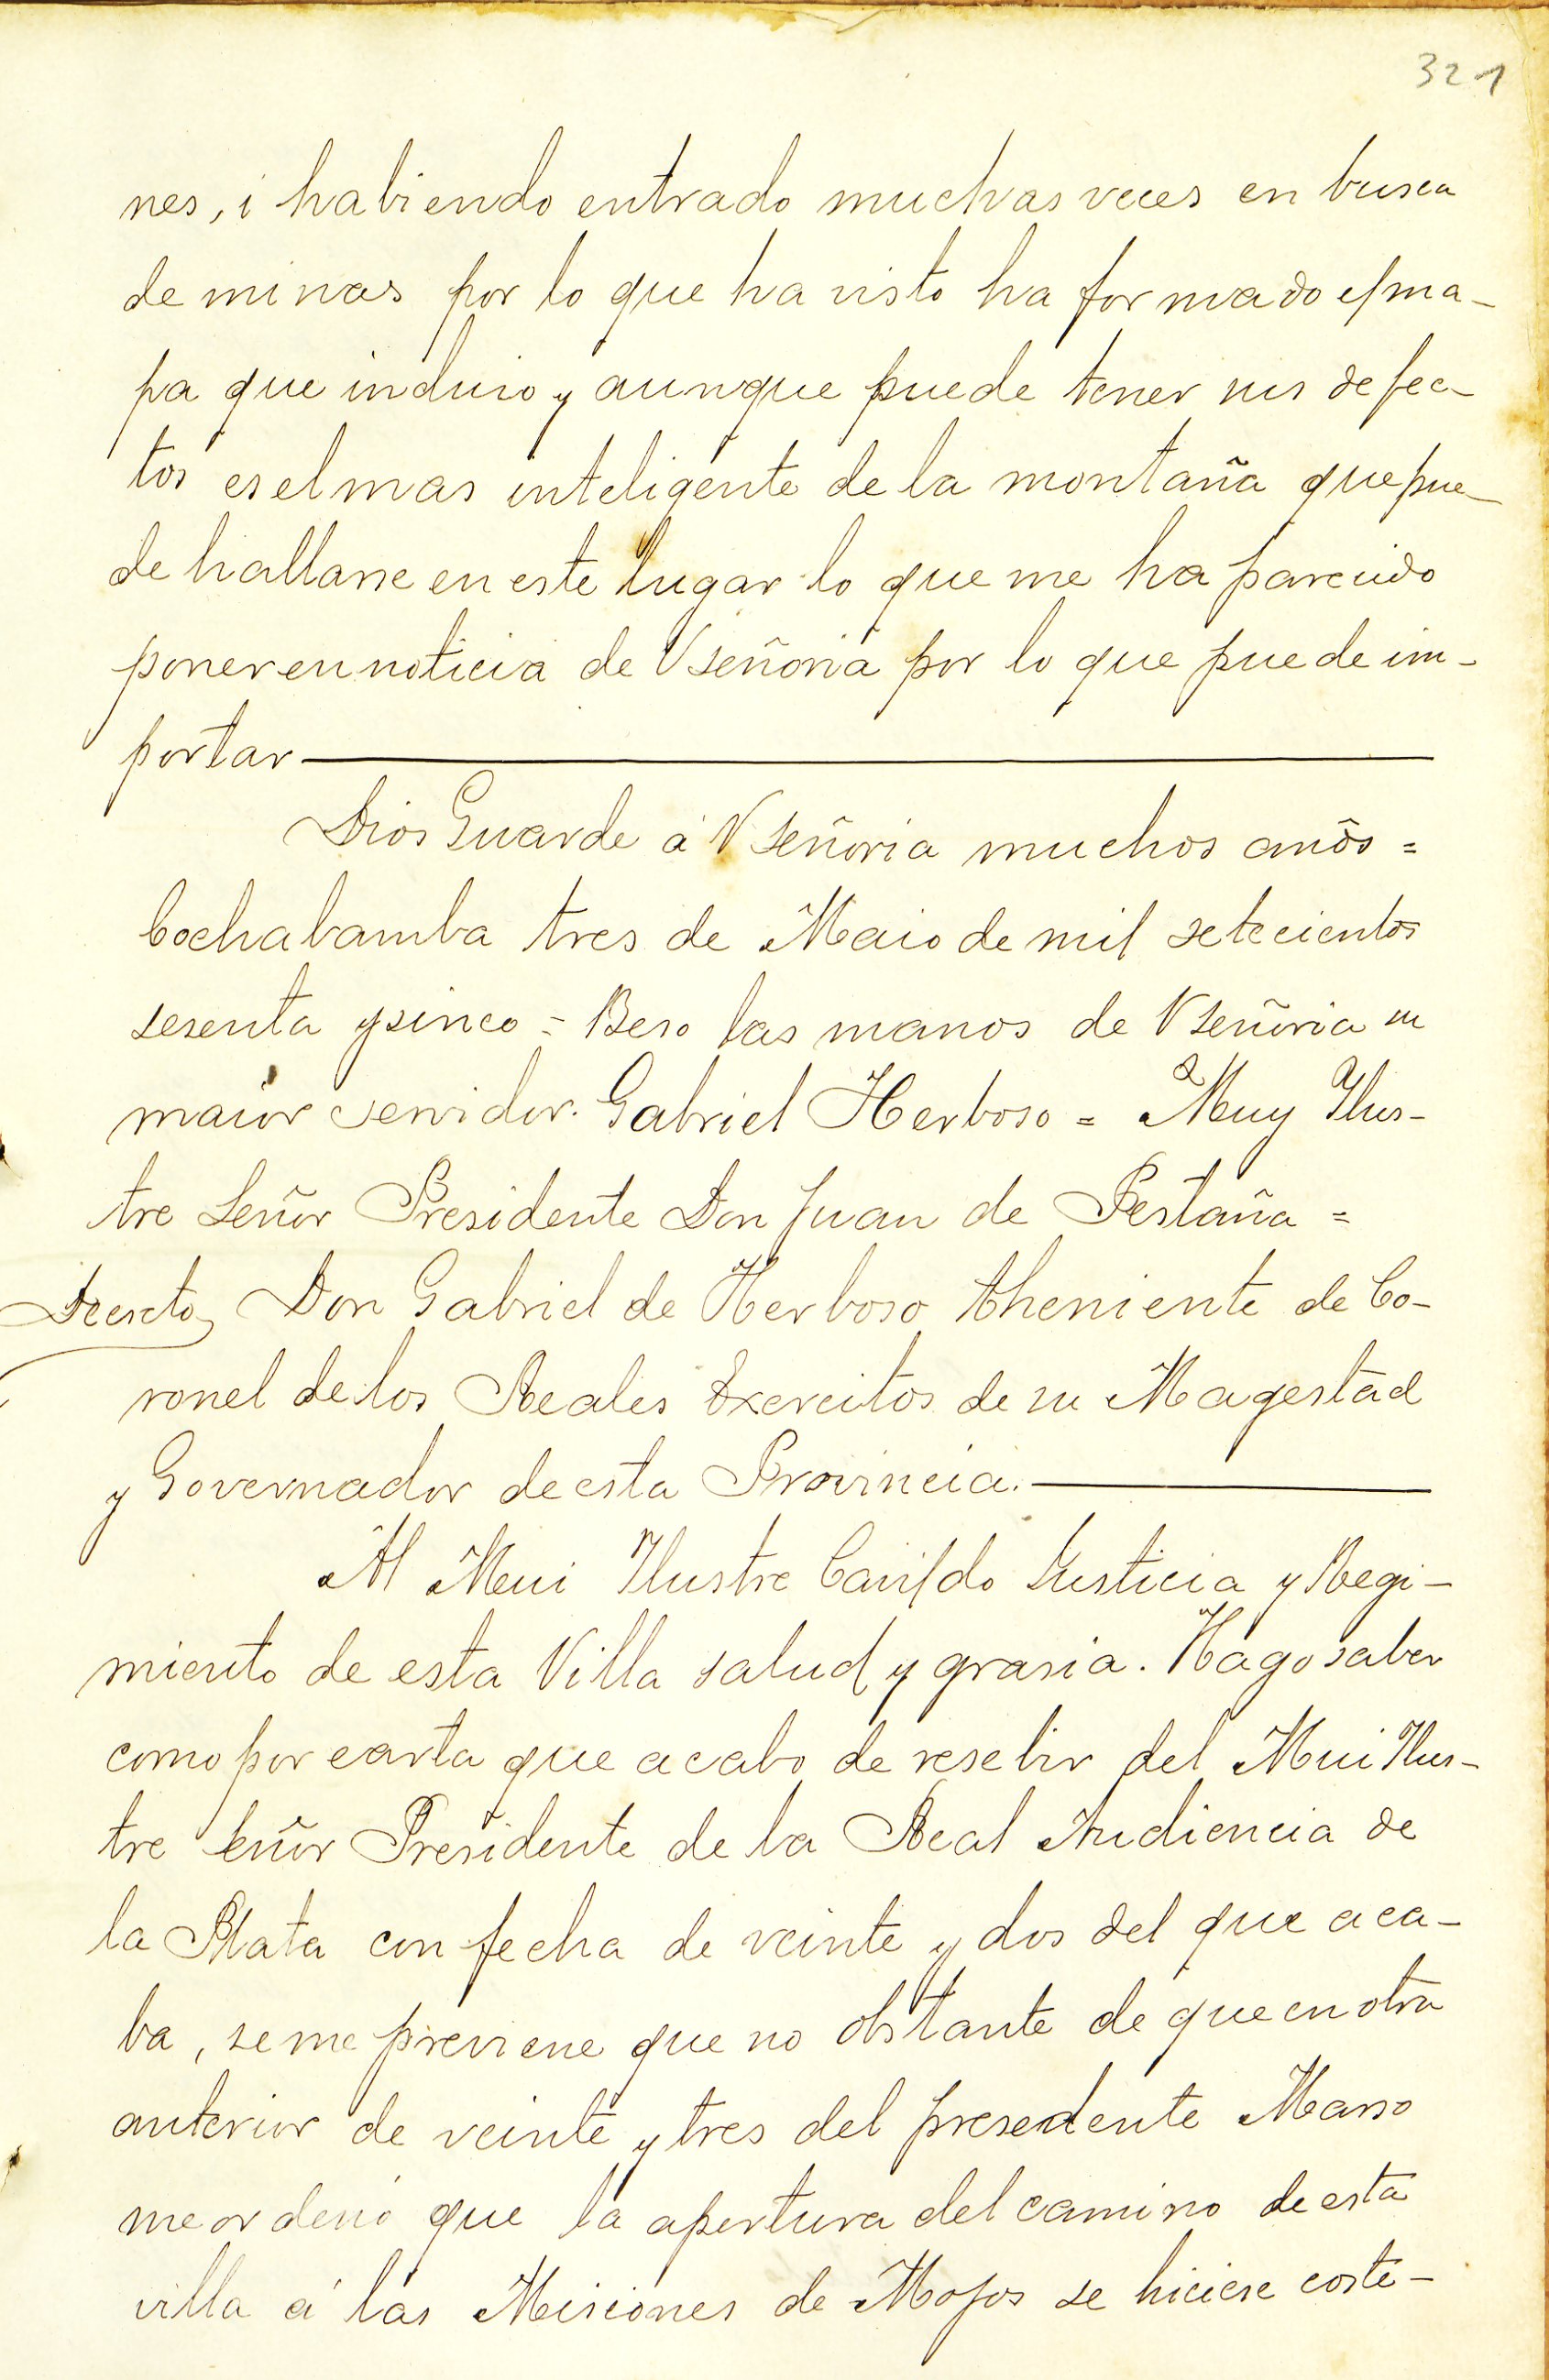 321
nes, i habiendo entrado muchas veces en busca
de minas por lo que ha visto ha formado el ma-
pa que incluio y aunque puede tener sus defec-
tos es el mas inteligente de la montaña que pue-
de hallarse en este lugar lo que me ha parecido
poner en noticia de Vseñoria por lo que puede im-
portar
Dios Guarde á Vseñoria muchos años =
Cochabamba tres de Maio de mil setecientos
sesenta y sinco = Beso las manos de Vseñoria su
maior servidor. Gabriel Herboso = Muy Ilus-
tre Señor Presidente Don Juan de Pestaña =
Decreto Don Gabriel de Herboso theniente de Co-
ronel de los Reales Exercitos de su Magestad
y Governador de esta Provincia.
Al Mui Ilustre Cavildo Justicia y Regi-
miento de esta Villa salud y grasia. Hago saber
como por carta que acabo de resebir del Mui Ilus-
tre Señor Presidente de la Real Audiencia de
la Plata con fecha de veinte y dos del que aca-
ba, se me previene que no obstante de que en otra
anterior de veinte y tres del presedente Marso
me ordenó que la apertura del camino de esta
villa á las Misiones de Mojos se hiciese coste-